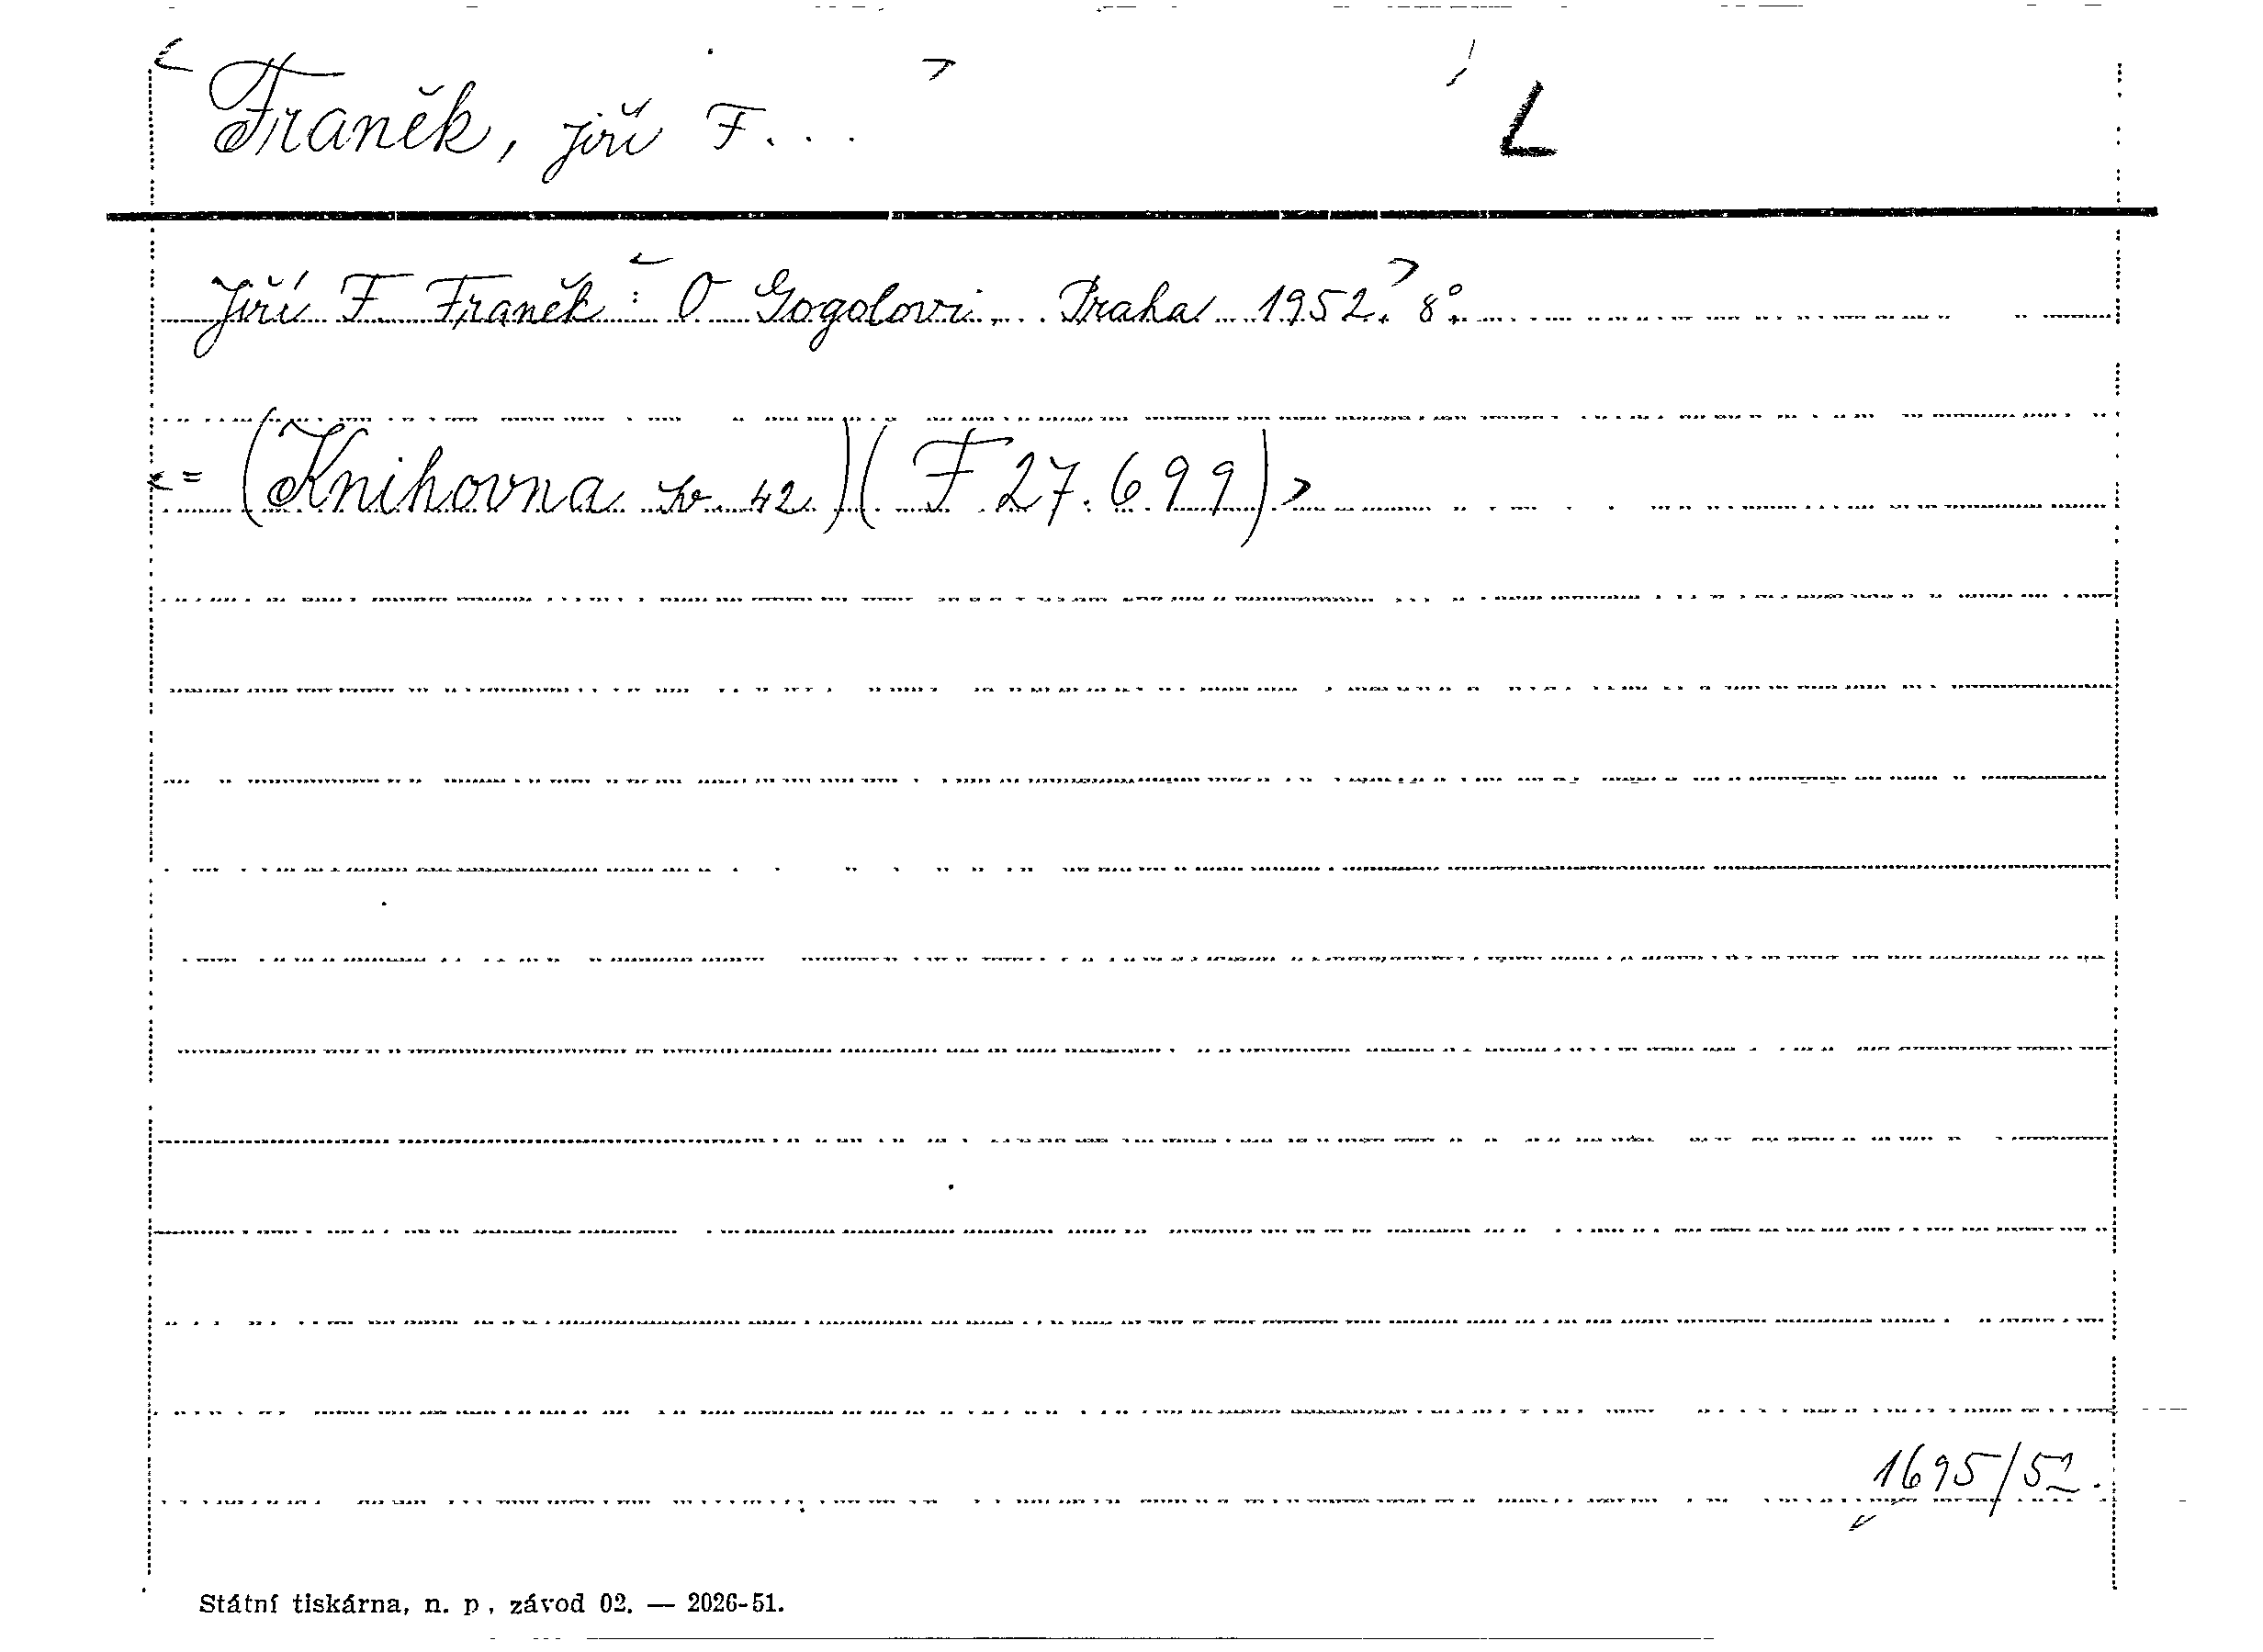 Franěk, Jiří F... L
Jiří F. Franěk: O Gogolovi. Praha 1952. 8°.
= (Knihovna sv. 42.) (F 27.699)
1695/52.
Státní tiskárna, n. p., závod 02. — 2026-51.